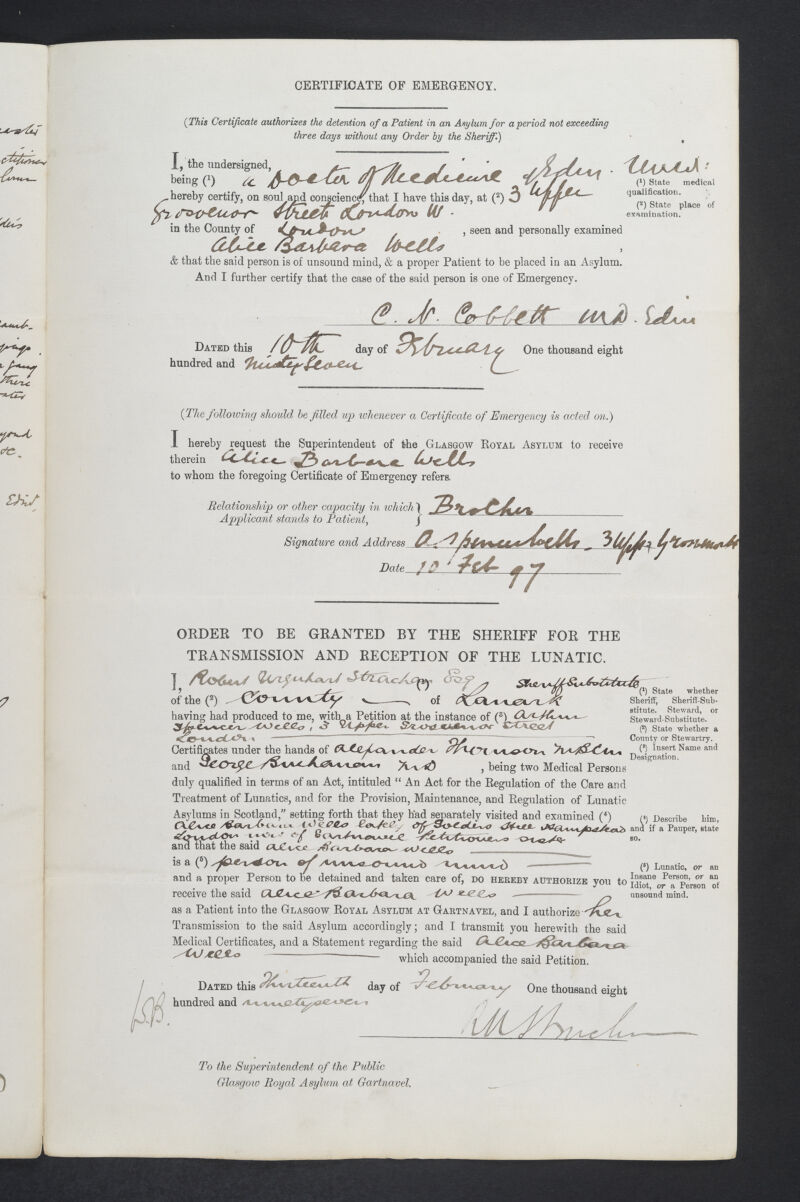 CERTIFICATE OF EMERGENCY.
(This Certificate authorizes the detention of a Patient in an Asylum for a period not exceeding
three days without any Order by the Sheriff.)
I, the undersigned,
being (1) a Doctor of Medicine of Edin. Univ:
hereby certify, on soul and conscience, that I have this day, at (2) 3 Upper
Grosvenor Street London W.
in the County of London , seen and personally examined
Alice Barbara Wells ,
& that the said person is of unsound mind, & a proper Patient to be placed in an Asylum.
And I further certify that the case of the said person is one of Emergency.
(1) State medical
qualification.
(2) State place of
examination.
C. N. Cobbett M.D. Edin
DATED this 10th day of February One thousand eight
hundred and ninety Seven
(The following should be filled up whenever a Certificate of Emergency is acted on.)
I hereby request the Superintendent of the GLASGOW ROYAL ASYLUM to receive
therein Alice Barbara Wells
to whom the foregoing Certificate of Emergency refers.
Relationship or other capacity in which } Brother
Applicant stands to Patient, }
Signature and Address A. Spencer Wells - 3 Upper Grosvenor St
Date 10 Feb 97
ORDER TO BE GRANTED BY THE SHERIFF FOR THE
TRANSMISSION AND RECEPTION OF THE LUNATIC.
I, Robert Urquhart Strachan (1) Esq Sheriff Substitute
of the (2) County of Lanark
having had produced to me, with a Petition at the instance of (3) Arthur
Spencer Wells, 3 Upper Grosvenor Street
London
Certificates under the hands of Alexander Thomson M.B C.M
and George Buchanan M.D , being two Medical Persons
duly qualified in terms of an Act, intituled “ An Act for the Regulation of the Care and
Treatment of Lunatics, and for the Provision, Maintenance, and Regulation of Lunatic
Asylums in Scotland,” setting forth that they had separately visited and examined (4)
Alice Barbara Wells lately of Golders Hill Hampstead
London now of Gartnavel Petitioners sister
and that the said Alice Barbara Wells
is a (5) person of unsound mind
and a proper Person to be detained and taken care of, DO HEREBY AUTHORIZE you to
receive the said Alice Barbara Wells
as a Patient into the GLASGOW ROYAL ASYLUM AT GARTNAVEL, and I authorize her
Transmission to the said Asylum accordingly; and I transmit you herewith the said
Medical Certificates, and a Statement regarding the said Alice Barbara
Wells which accompanied the said Petition.
(1) State whether
Sheriff, Sheriff-Sub-
stitute. Steward, or
Steward-Substitute.
(2) State whether a
County or Stewartry.
(3) Insert Name and
Designation.
(4) Describe him,
and if a Pauper, state
so.
(5) Lunatic, or an
Insane Person, or an
Idiot, or a Person of
unsound mind.
DATED this Thirteenth day of February One thousand eight
hundred and ninety seven
R U Strachan
To the Superintendent of the Public
Glasgow Royal Asylum at Gartnavel.